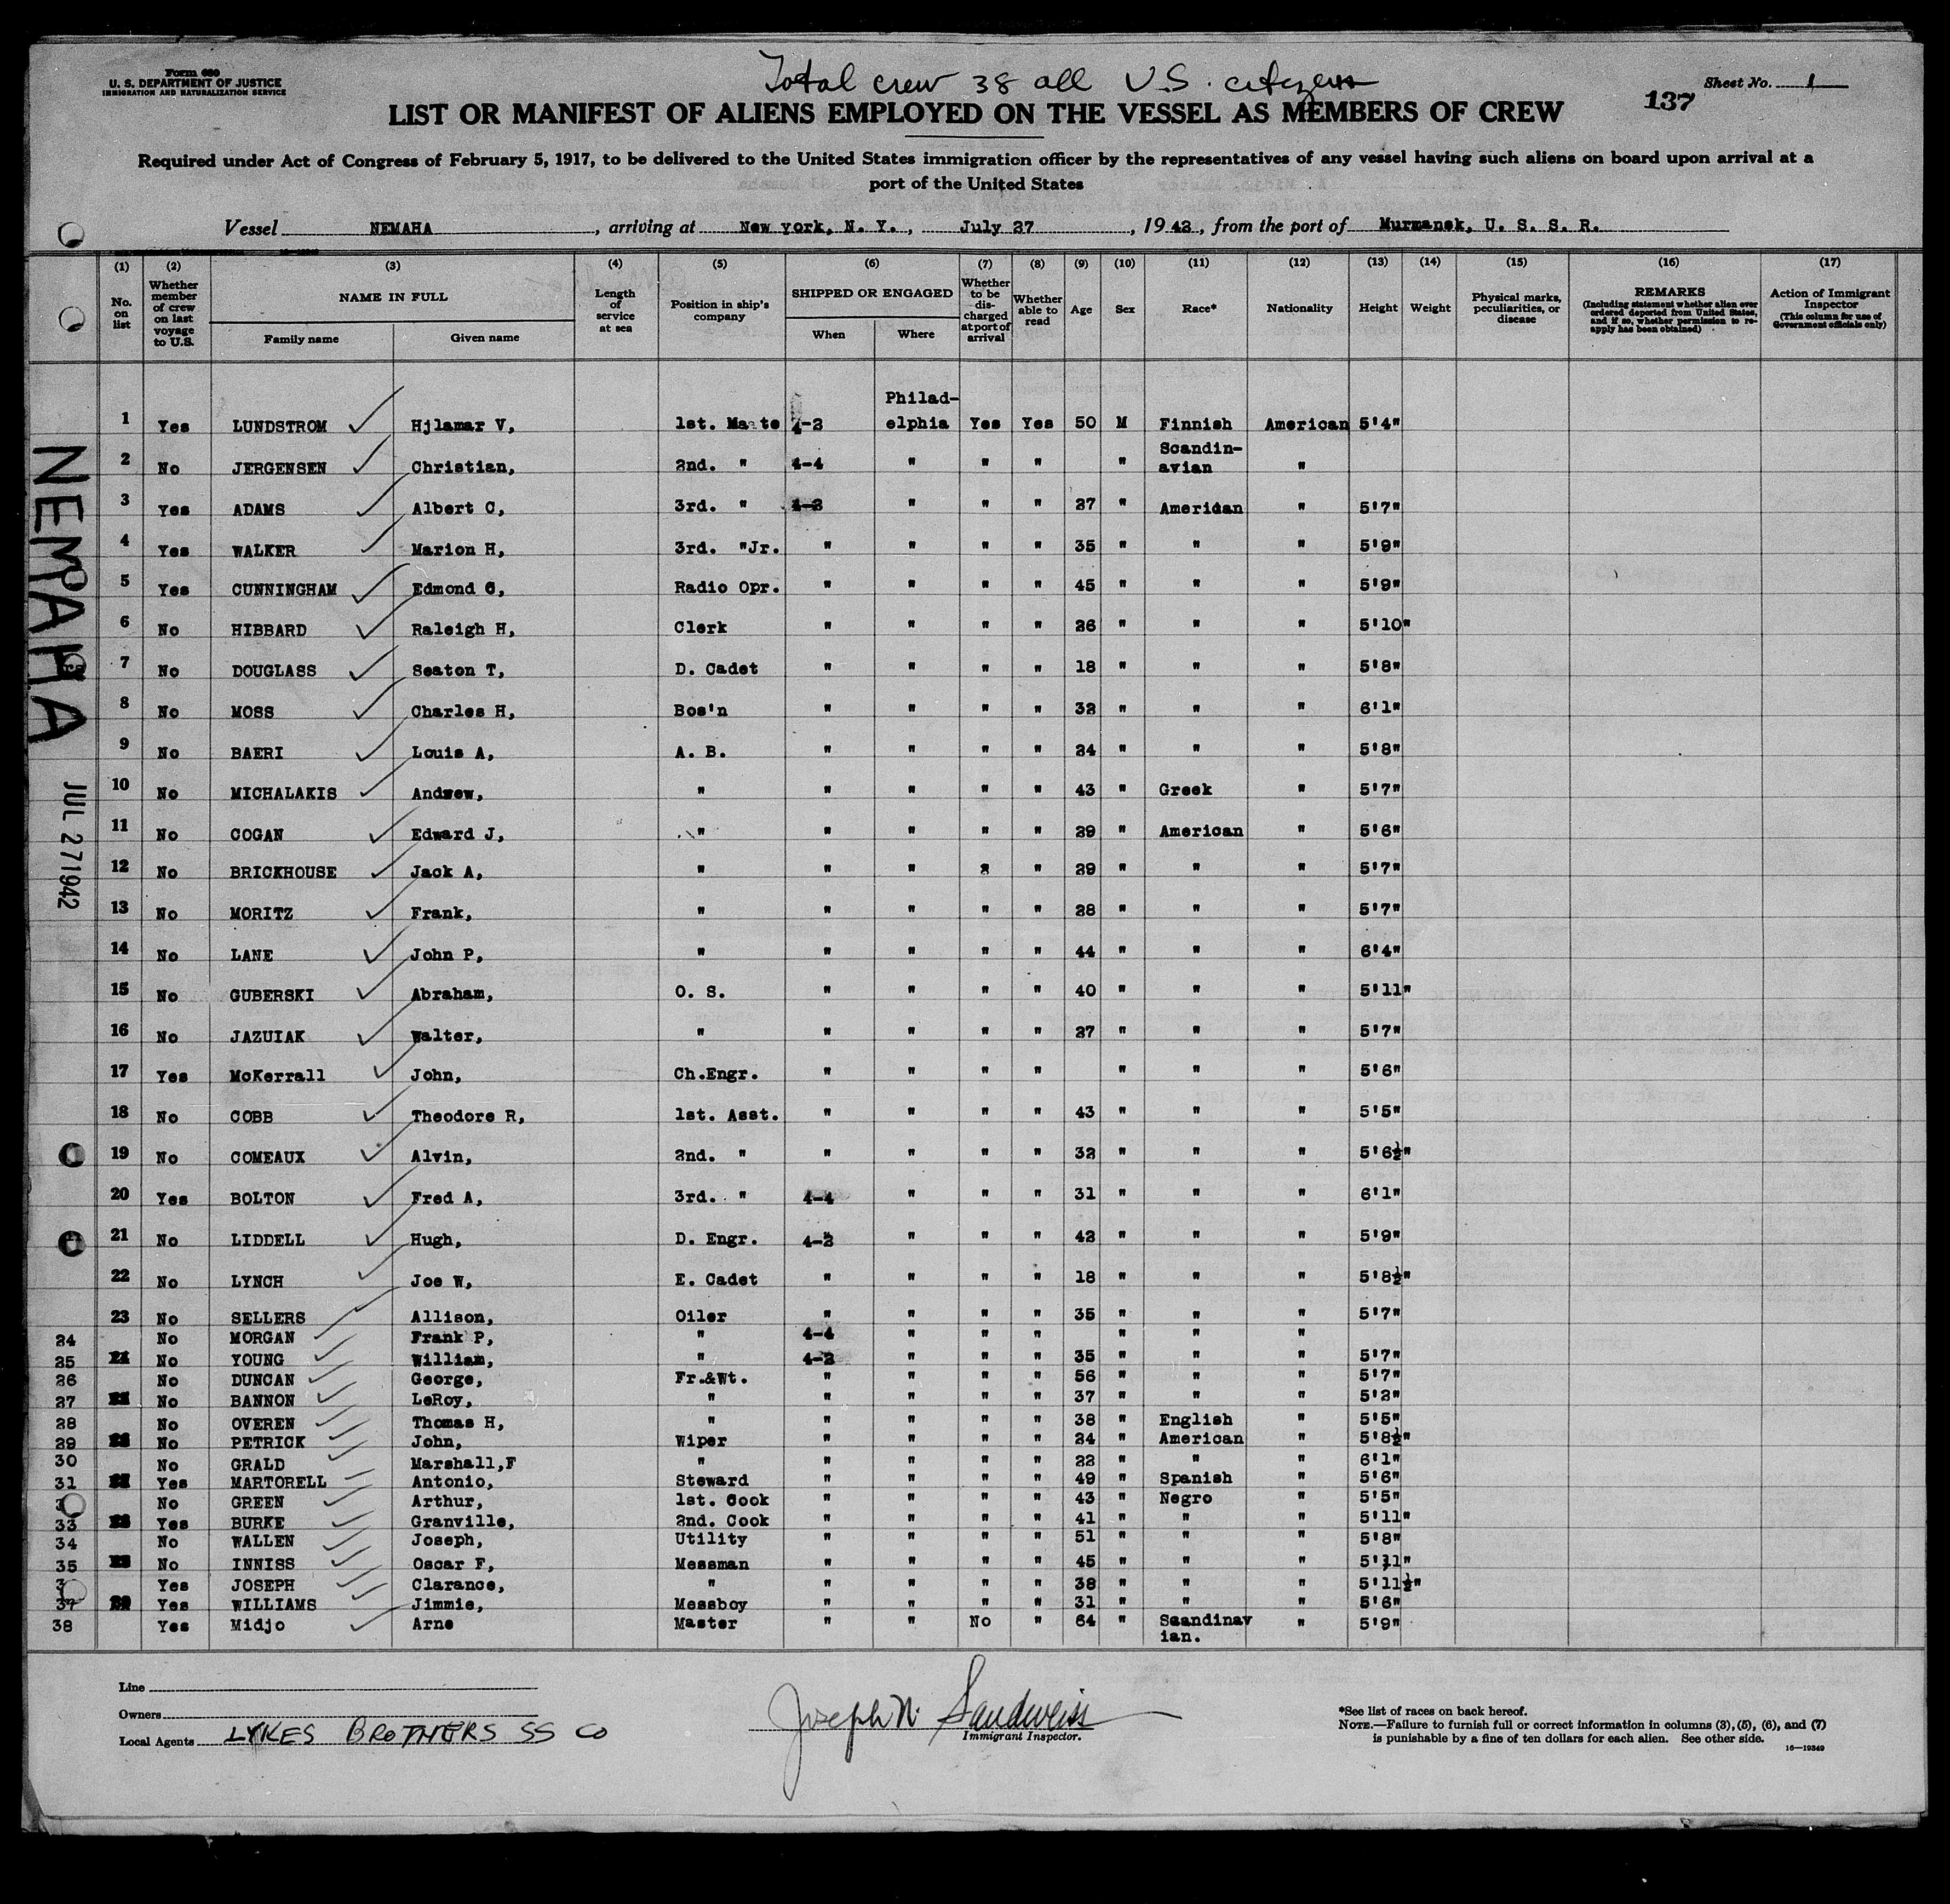 Form 680
U. S. DEPARTMENT OF JUSTICE
IMMIGRATION AND NATURALIZATION SERVICE
Total crew 38 all U.S. citizens
Sheet No. 1
137
LIST OR MANIFEST OF ALIENS EMPLOYED ON THE VESSEL AS MEMBERS OF CREW
Required under Act of Congress of February 5, 1917, to be delivered to the United States immigration officer by the representatives of any vessel having such aliens on board upon arrival at a
port of the United States
Vessel NEMAHA, arriving at New york, N. Y., July 27, 1942, from the port of Murmansk, U. S. S. R.
(1) No. on list
(2) Whether member of crew on last voyage to U.S.
(3) NAME IN FULL Family name Given name
(4) Length of service at sea
(5) Position in ship's company
(6) SHIPPED OR ENGAGED When Where
(7) Whether to be discharged at port of arrival
(8) Whether able to read
(9) Age
(10) Sex
(11) Race*
(12) Nationality
(13) Height
(14) Weight
(15) Physical marks, peculiarities, or disease
(16) REMARKS (Including statement whether alien ever ordered deported from United States, and if so, whether permission to reapply has been obtained)
(17) Action of Immigrant Inspector (This column for use of Government officials only)
NEMAHA
JUL 27 1942
1 Yes LUNDSTROM Hjlamar V, 1st. Maate 4-2 Philad-elphia Yes Yes 50 M Finnish American 5'4"
2 No JERGENSEN Christian, 2nd. " 4-4 " " " " Scandin-avian "
3 Yes ADAMS Albert C, 3rd. " 4-2 " " " 27 " American " 5'7"
4 Yes WALKER Marion H, 3rd. "Jr. " " " " 35 " " " 5'9"
5 Yes CUNNINGHAM Edmond C, Radio Opr. " " " " 45 " " " 5'9"
6 No HIBBARD Raleigh H, Clerk " " " " 26 " " " 5'10"
7 No DOUGLASS Seaton T, D. Cadet " " " " 18 " " " 5'8"
8 No MOSS Charles H, Bos'n " " " " 32 " " " 6'1"
9 No BAERI Louis A, A. B. " " " " 24 " " " 5'8"
10 No MICHALAKIS Andwew, " " " " " 43 " Greek " 5'7"
11 No COGAN Edward J, " " " " " 29 " American " 5'6"
12 No BRICKHOUSE Jack A, " " " 2 " 29 " " " 5'7"
13 No MORITZ Frank, " " " " " 28 " " " 5'7"
14 No LANE John P, " " " " " 44 " " " 6'4"
15 No GUBERSKI Abraham, O. S. " " " " 40 " " " 5'11"
16 No JAZUIAK Walter, " " " " " 27 " " " 5'7"
17 Yes McKerrall John, Ch.Engr. " " " " " " " 5'6"
18 No COBB Theodore R, 1st. Asst. " " " " 43 " " " 5'5"
19 No COMEAUX Alvin, 2nd. " " " " " 32 " " " 5'6½"
20 Yes BOLTON Fred A, 3rd. " 4-4 " " " 31 " " " 6'1"
21 No LIDDELL Hugh, D. Engr. 4-2 " " " 42 " " " 5'9"
22 No LYNCH Joe W, E. Cadet " " " " 18 " " " 5'8½"
23 No SELLERS Allison, Oiler " " " " 35 " " " 5'7"
24 No MORGAN Frank P, " 4-4 " " " " " "
25 No YOUNG William, " 4-2 " " " 35 " " " 5'7"
26 No DUNCAN George, Fr.&Wt. " " " " 56 " " " 5'7"
27 No BANNON LeRoy, " " " " " 37 " " " 5'2"
28 No OVEREN Thomas H, " " " " " 38 " English " 5'5"
29 No PETRICK John, Wiper " " " " 24 " American " 5'8½"
30 No GRALD Marshall,F " " " " " 22 " " " 6'1"
31 Yes MARTORELL Antonio, Steward " " " " 49 " Spanish " 5'6"
3 No GREEN Arthur, 1st. Cook " " " " 43 " Negro " 5'5"
33 Yes BURKE Granville, 2nd. Cook " " " " 41 " " " 5'11"
34 No WALLEN Joseph, Utility " " " " 51 " " " 5'8"
35 No INNISS Oscar F, Messman " " " " 45 " " " 5'11"
3 Yes JOSEPH Clarance, " " " " " 38 " " " 5'11½"
37 Yes WILLIAMS Jimmie, Messboy " " " " 31 " " " 5'6"
38 Yes Midjo Arne Master " " No " 64 " Scandinavian. " 5'9"
Line
Owners
Local Agents LYKES BROTHERS SS CO
Joseph N. Sandweiss
Immigrant Inspector.
*See list of races on back hereof.
NOTE.—Failure to furnish full or correct information in columns (3), (5), (6), and (7)
is punishable by a fine of ten dollars for each alien. See other side.
16—19349